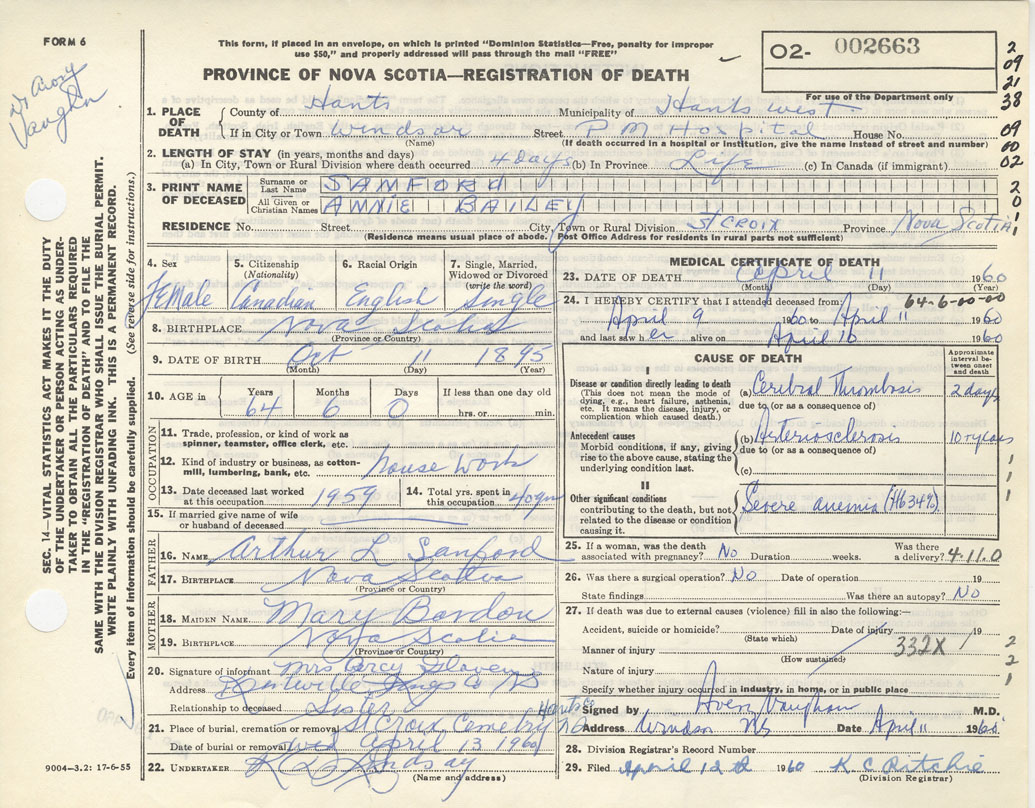 FORM 6
This form, if placed in an envelope, on which is printed "Dominion Statistics—Free, penalty for improper
use $50," and properly addressed will pass through the mail "FREE"
PROVINCE OF NOVA SCOTIA—REGISTRATION OF DEATH
02- 002663
For use of the Department only
2
09
21
38
09
00
02
2
0
1
Vaughn
SEC. 14—VITAL STATISTICS ACT MAKES IT THE DUTY
OF THE UNDERTAKER OR PERSON ACTING AS UNDER-
TAKER TO OBTAIN ALL THE PARTICULARS REQUIRED
IN THE "REGISTRATION OF DEATH" AND TO FILE THE
SAME WITH THE DIVISION REGISTRAR WHO SHALL ISSUE THE BURIAL PERMIT.
WRITE PLAINLY WITH UNFADING INK. THIS IS A PERMANENT RECORD.
Every item of information should be carefully supplied. (See reverse side for instructions.)
1. PLACE OF DEATH
County of Hants Municipality of Hants West
If in City or Town Windsor Street P M Hospital House No.
(Name) (If death occurred in a hospital or institution, give the name instead of street and number)
2. LENGTH OF STAY (in years, months and days)
(a) In City, Town or Rural Division where death occurred 4 days (b) In Province Life (c) In Canada (if immigrant)
3. PRINT NAME OF DECEASED
Surname or Last Name SANFORD
All Given or Christian Names ANNIE BAILEY
RESIDENCE No. Street City, Town or Rural Division ST CROIX Province Nova Scotia
(Residence means usual place of abode. Post Office Address for residents in rural parts not sufficient)
4. Sex Female
5. Citizenship (Nationality) Canadian
6. Racial Origin English
7. Single, Married, Widowed or Divorced (write the word) Single
8. BIRTHPLACE Nova Scotia
(Province or Country)
9. DATE OF BIRTH Oct 11 1895
(Month) (Day) (Year)
10. AGE in Years 64 Months 6 Days 0 If less than one day old hrs. or min.
OCCUPATION
11. Trade, profession, or kind of work as spinner, teamster, office clerk, etc.
12. Kind of industry or business, as cotton-mill, lumbering, bank, etc. House Work
13. Date deceased last worked at this occupation 1959
14. Total yrs. spent in this occupation 40 yrs
15. If married give name of wife or husband of deceased
FATHER
16. NAME Arthur L Sanford
17. BIRTHPLACE Nova Scotia
(Province or Country)
MOTHER
18. MAIDEN NAME Mary Bardon
19. BIRTHPLACE Nova Scotia
(Province or Country)
20. Signature of informant Mrs Percy
Address Kings Co NS
Relationship to deceased Sister
21. Place of burial, cremation or removal St Croix Cemetry Hants Co NS
Date of burial or removal Wed April 13 1960
22. UNDERTAKER Lindsay
(Name and address)
9004—3.2: 17-6-55
MEDICAL CERTIFICATE OF DEATH
23. DATE OF DEATH April 11 1960
(Month) (Day) (Year)
24. I HEREBY CERTIFY that I attended deceased from: 64-6-00-00
April 9 1960 to April 11 1960
and last saw her alive on April 10 1960
CAUSE OF DEATH
Approximate interval between onset and death
I
Disease or condition directly leading to death
(This does not mean the mode of dying, e.g., heart failure, asthenia, etc. It means the disease, injury, or complication which caused death.)
(a) Cerebral Thrombosis 2 days
due to (or as a consequence of)
Antecedent causes
Morbid conditions, if any, giving rise to the above cause, stating the underlying condition last.
(b) Arteriosclerosis 10 years
due to (or as a consequence of)
(c)
II
Other significant conditions
contributing to the death, but not related to the disease or condition causing it.
Severe anemia (Hb 34%)
1
1
1
25. If a woman, was the death associated with pregnancy? No Duration weeks. Was there a delivery? 4-11.0
26. Was there a surgical operation? No Date of operation 19
State findings Was there an autopsy? No
27. If death was due to external causes (violence) fill in also the following:—
Accident, suicide or homicide? Date of injury 19
(State which)
Manner of injury 332X
(How sustained)
Nature of injury
2
2
1
Specify whether injury occurred in industry, in home, or in public place
Signed by Vaughan M.D.
Address Windsor NS Date April 11 1960
28. Division Registrar's Record Number
29. Filed April 12 1960 K C Ritchie
(Division Registrar)